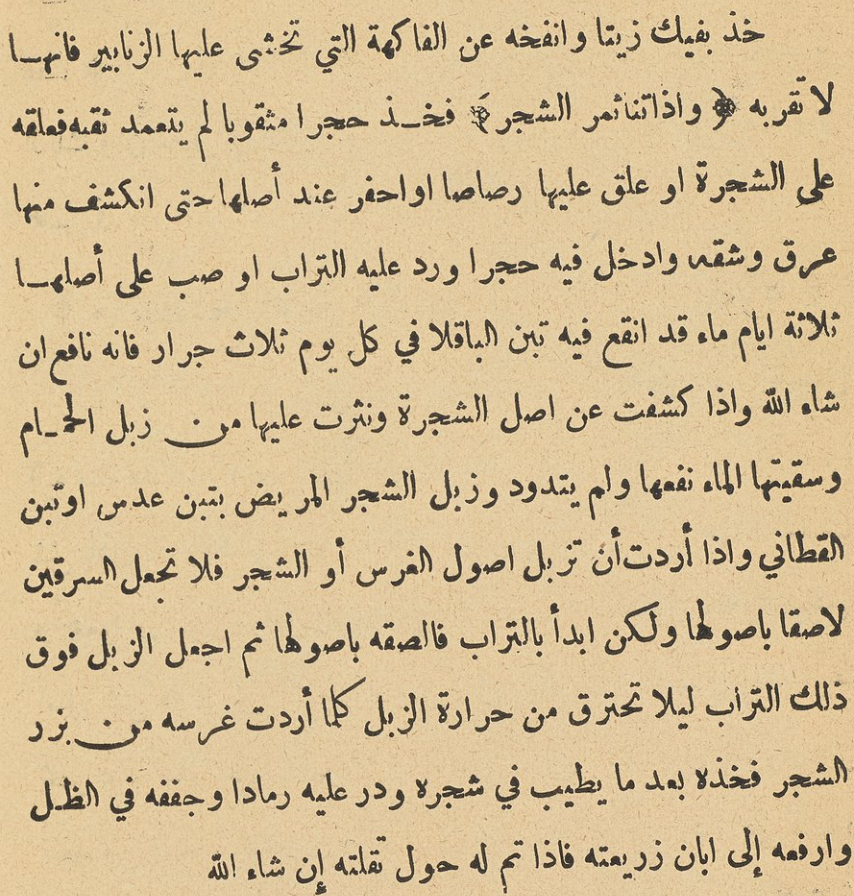 خذ بفيك زيتا وانفخه عن الفاكهة التي تخشى عليها الزنابير فانهـا
لا تقربه ﴿ واذا تناثمر الشجر ﴾ فخـذ حجرا مثقوبا لم يتعمد ثقبه فعلقه
على الشجرة او علق عليها رصاصا او احفر عند أصلها حتى انكشف منها
عرق وشقه وادخل فيه حجرا ورد عليه التراب او صب على أصلهـا
ثلاثة ايام ماء قد انقع فيه تبن الباقلا في كل يوم ثلاث جرار فانه نافع ان
شاء الله واذا كشفت عن اصل الشجرة ونثرت عليها من زبل الحمـام
وسقيتها الماء نفعها ولم يتدود وزبل الشجر المريض بتبن عدس او تبن
القطاني واذا أردت أن تزبل اصول الغرس أو الشجر فلا تجعل السرقين
لاصقا باصولها ولكن ابدأ بالتراب فالصقه باصولها ثم اجعل الزبل فوق
ذلك التراب ليلا تحترق من حرارة الزبل كلما أردت غرسه من بزر
الشجر فخذه بعد ما يطيب في شجره ودر عليه رمادا وجففه في الظل
وارفعه إلى ابان زريعته فاذا تم له حول نقلته إن شاء الله